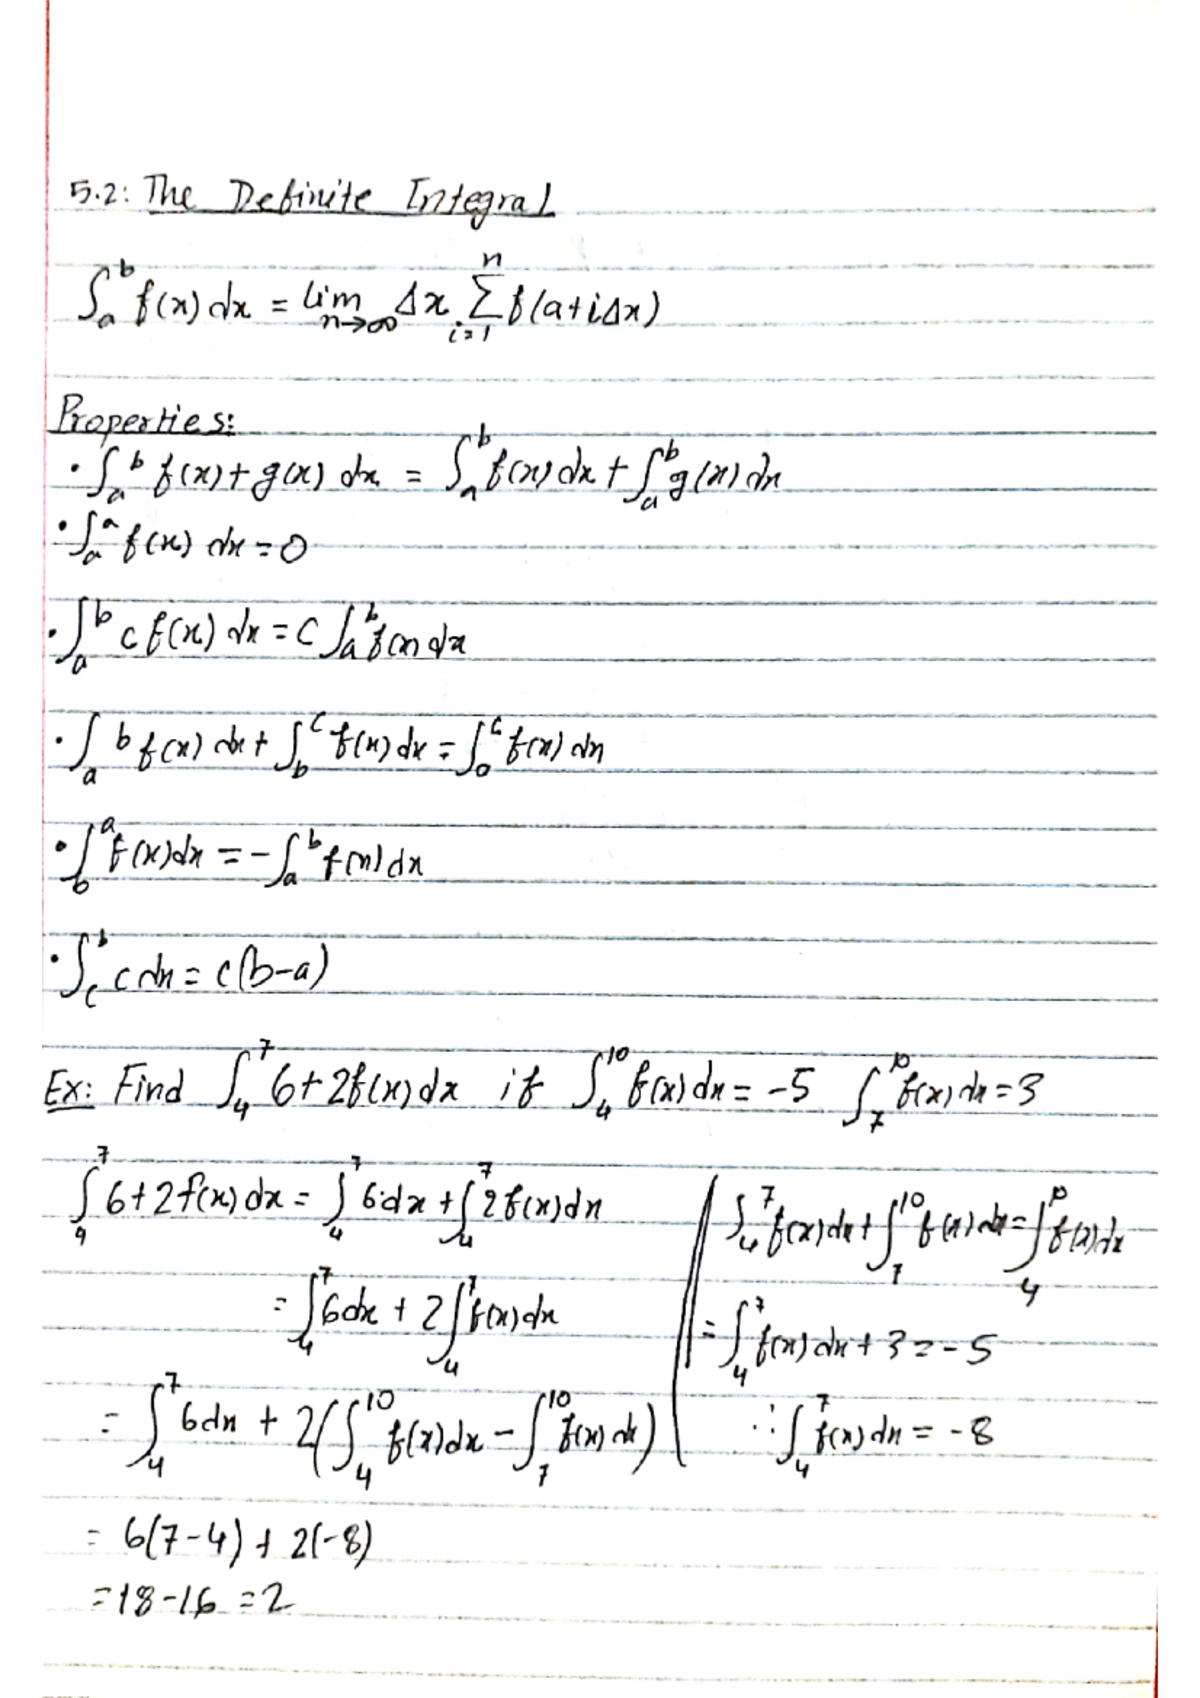 5.2: The Definite Integral
∫ₐᵇ f(x) dx = lim n→∞ Δx Σ i=1 n f(a+iΔx)
Properties:
• ∫ₐᵇ f(x)+g(x) dx = ∫ₐᵇ f(x) dx + ∫ₐᵇ g(x) dx
• ∫ₐᵃ f(x) dx = 0
• ∫ₐᵇ c f(x) dx = c ∫ₐᵇ f(x) dx
• ∫ₐᵇ f(x) dx + ∫_b^c f(x) dx = ∫_a^c f(x) dx
• ∫_b^a f(x) dx = - ∫ₐᵇ f(x) dx
• ∫_c^b c dx = c(b-a)
Ex: Find ∫₄⁷ 6+2f(x) dx if ∫₄¹⁰ f(x) dx = -5 ∫₇¹⁰ f(x) dx = 3
∫₄⁷ 6+2f(x) dx = ∫₄⁷ 6dx + ∫₄⁷ 2f(x) dx
= ∫₄⁷ 6dx + 2∫₄⁷ f(x) dx
= ∫₄⁷ 6dx + 2(∫₄¹⁰ f(x) dx - ∫₇¹⁰ f(x) dx)
= 6(7-4) + 2(-8)
= 18-16 = 2
∫₄⁷ f(x) dx + ∫₇¹⁰ f(x) dx = ∫₄¹⁰ f(x) dx
= ∫₄⁷ f(x) dx + 3 = -5
∴ ∫₄⁷ f(x) dx = -8